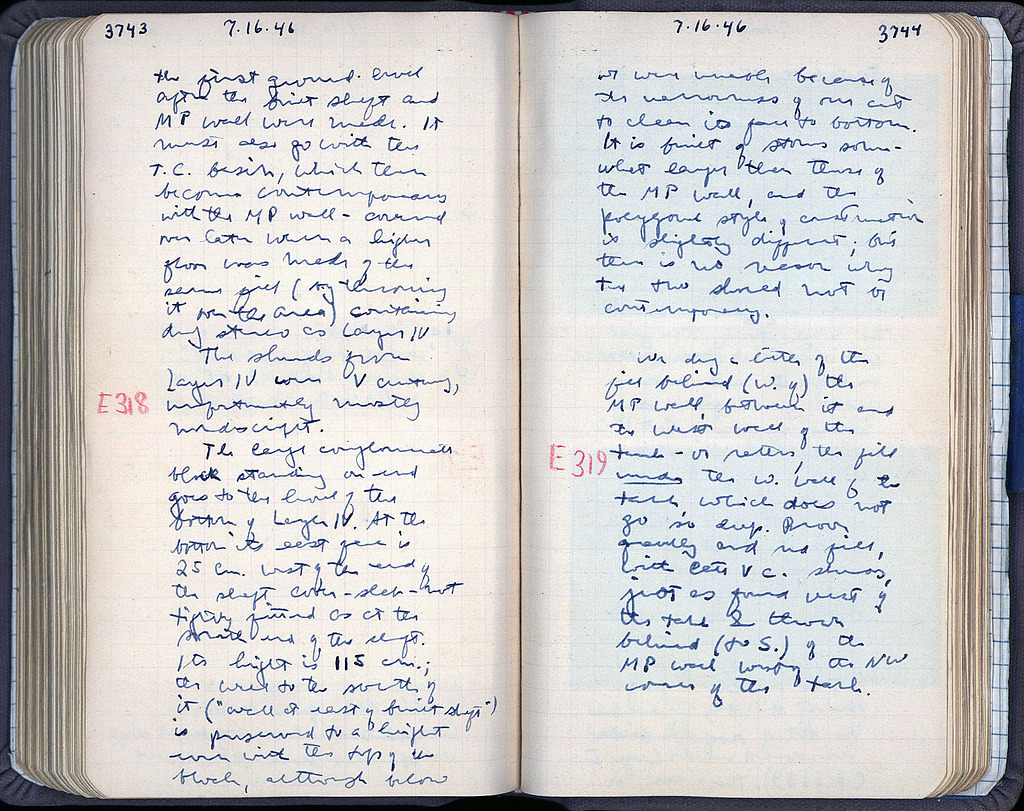 3743 7.16.46
the first ground level
after the built shaft and
MP wall were made. It
must also go with the
T.C. basin, which then
becomes contemporary
with the MP wall - covered
over later when a higher
floor was made of the
same fill (by throwing
it over the area) containing
dug stereo as Layer IV
The sherds from
Layer IV were V century,
E318
unfortunately mostly
nondescript.
The large conglomerate
block standing on end
goes to the level of the
bottom of Layer IV. At the
bottom its east face is
25 cm. west of the end of
the shaft cover-slab - not
tightly joined as at the
south end of the shaft.
Its height is 115 cm.;
the wall to the south of
it ("wall at east of built shaft")
is preserved to a height
even with the top of the
block, although below
7.16.46 3744
we were unable because of
the narrowness of our cut
to clean its face to bottom.
It is built of stones some-
what larger than those of
the MP wall, and the
polygonal style of construction
is slightly different; but
there is no reason why
the two should not be
contemporary.
We dug a little of the
fill behind (W. of) the
MP wall, between it and
the west wall of the
E319
tank - or rather, the fill
under the W. wall of the
tank which does not
go so deep. Brown
gravelly and red fill,
with late V c. sherds,
just as found west of
the tank & thrown
behind (to S.) of the
MP wall west of the NW
corner of the tank.